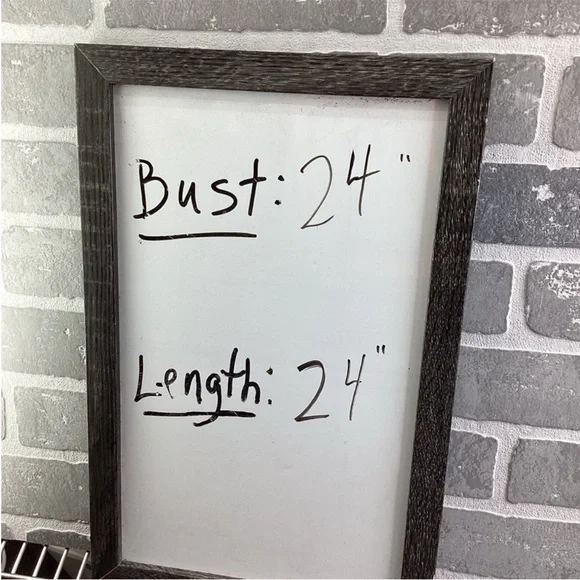 Bust: 24"
Length: 24"